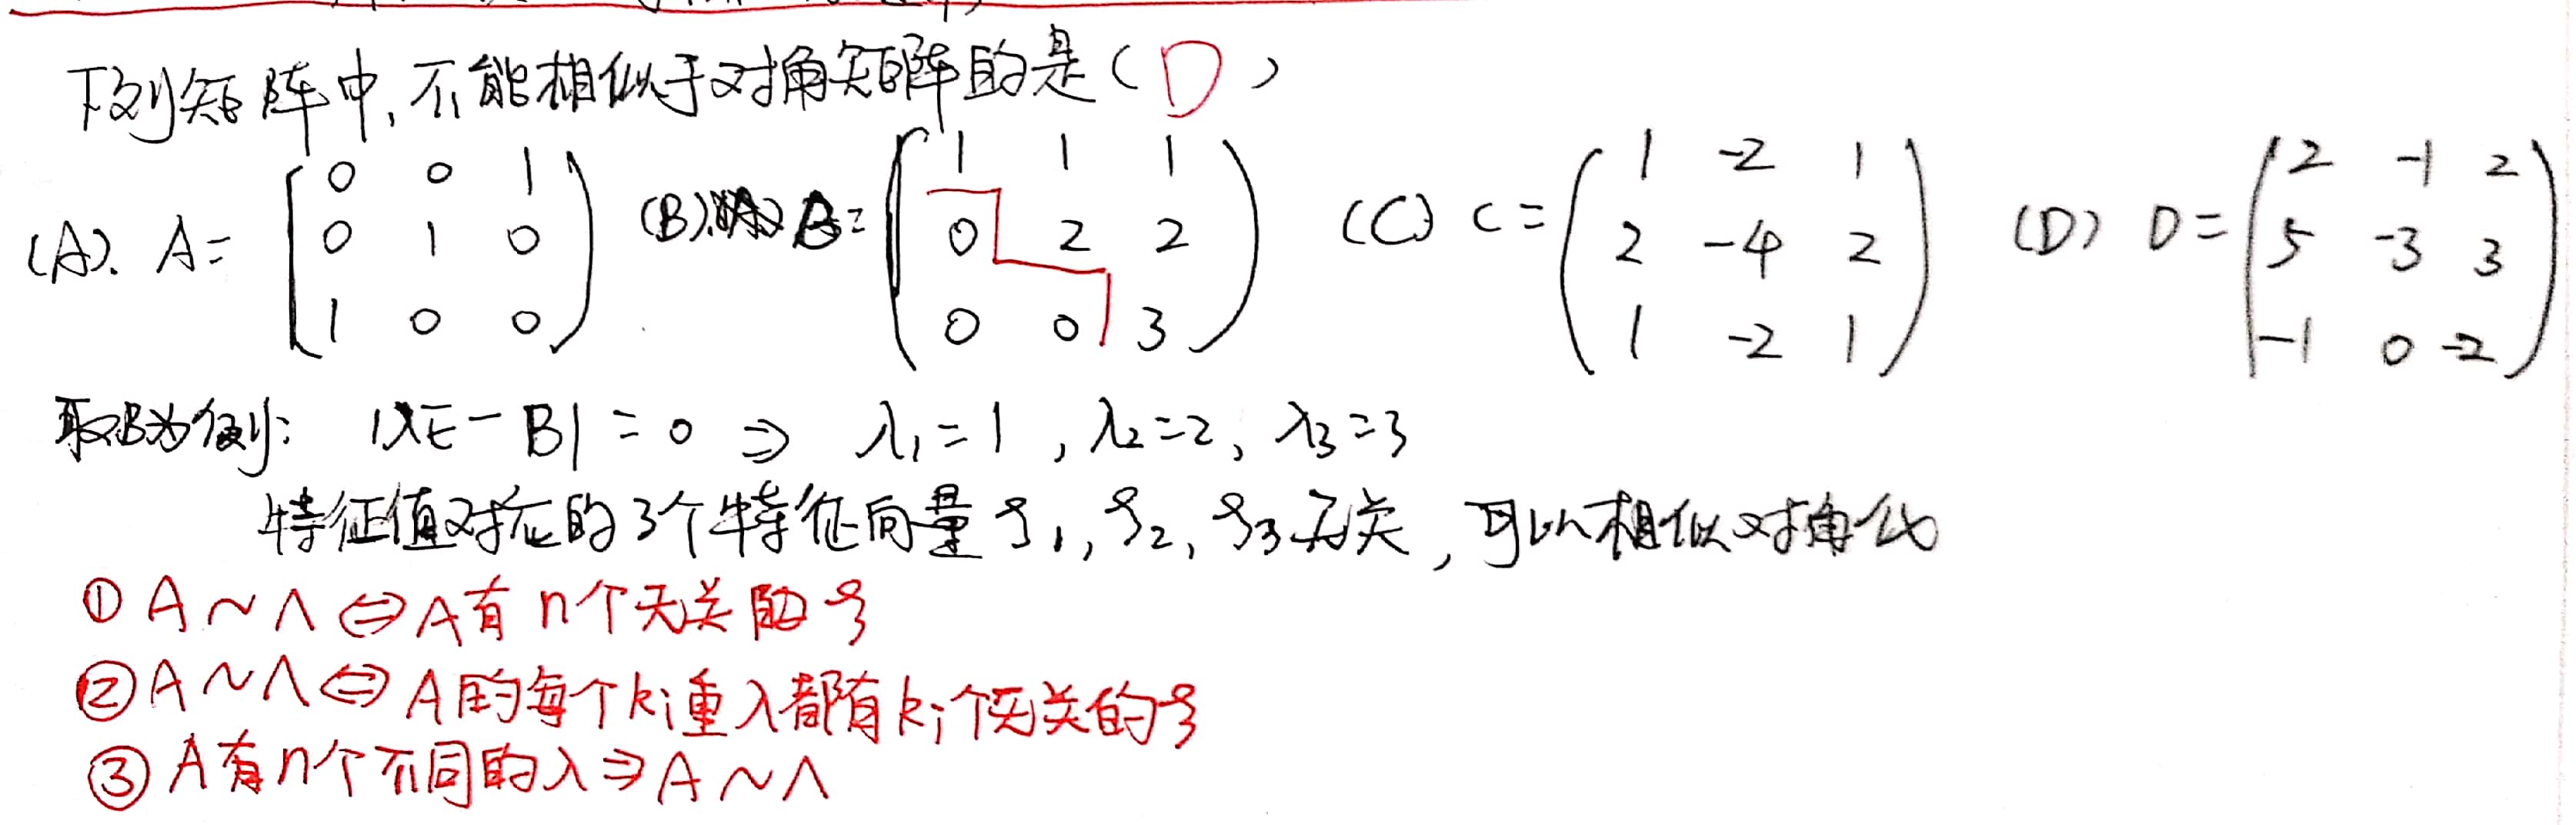 下列矩阵中,不能相似于对角矩阵的是( D )
(A). A= (0 0 1
0 1 0
1 0 0) (B). B= (1 1 1
0 2 2
0 0 3) (C) C= (1 -2 1
2 -4 2
1 -2 1) (D) D= (2 -1 2
5 -3 3
-1 0 -2)
取B为例: |λE-B|=0 ⇒ λ₁=1, λ₂=2, λ₃=3
特征值对应的3个特征向量ξ₁,ξ₂,ξ₃无关,可以相似对角化
① A~Λ⇔A有n个无关的ξ
② A~Λ⇔A的每个kᵢ重λ都有kᵢ个无关的ξ
③ A有n个不同的λ⇒A~Λ